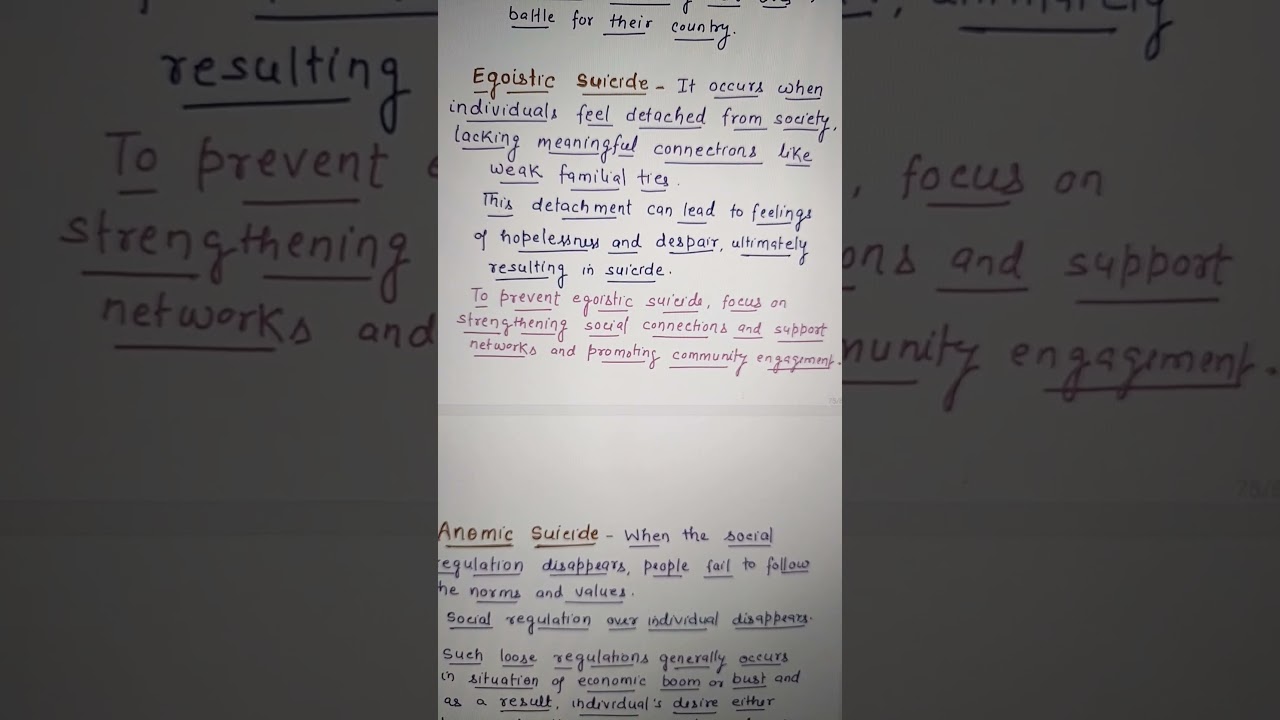 battle for their country.
Egoistic Suicide - It occurs when
individuals feel detached from society,
lacking meaningful connections like
weak familial ties.
This detachment can lead to feelings
of hopelessness and despair, ultimately
resulting in suicide.
To prevent egoistic suicide, focus on
strengthening social connections and support
networks and promoting community engagement.
Anomic Suicide - When the social
egulation disappears, people fail to follow
he norms and values.
Social regulation over individual disappears.
Such loose regulations generally occurs
in situation of economic boom or bust and
as a result, individual's desire either
resulting
To prevent
, focus on
strengthening
ons and support
networks and
munity engagement.